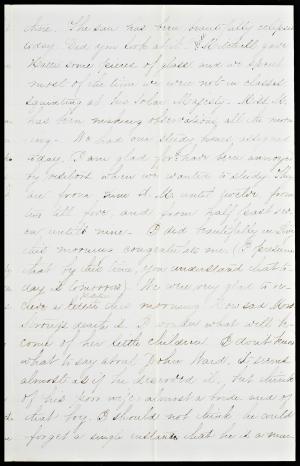 time. The sun has been beautifully eclipsed
today. Did you look at it. Mitchell gave
some pieces of glass and we spent
most of the time we were not in classes
squinting at his Solar Majesty. Miss M.
has been making observations all the morn-
ing. We had our study hours assigned
today. I am glad for I have been annoyed
by visitors when we wanted to study. They
are from nine A.M. until twelve, from
two till five, and from half past sev-
en until nine. I did beautifully in
this morning congratulate me (I presume
that by this time, you understand that to-
day is tomorrow). We were very glad to re-
ceive a letter this morning. How sad Mrs
Strong's death is. I wonder what will be-
come of her little children. I don't know
what to say about John Ward. It seems
almost as if he deserved it, but think
of his poor wife almost a bride and of
that boy. I should not think he could
forget a single instant that he is a mur